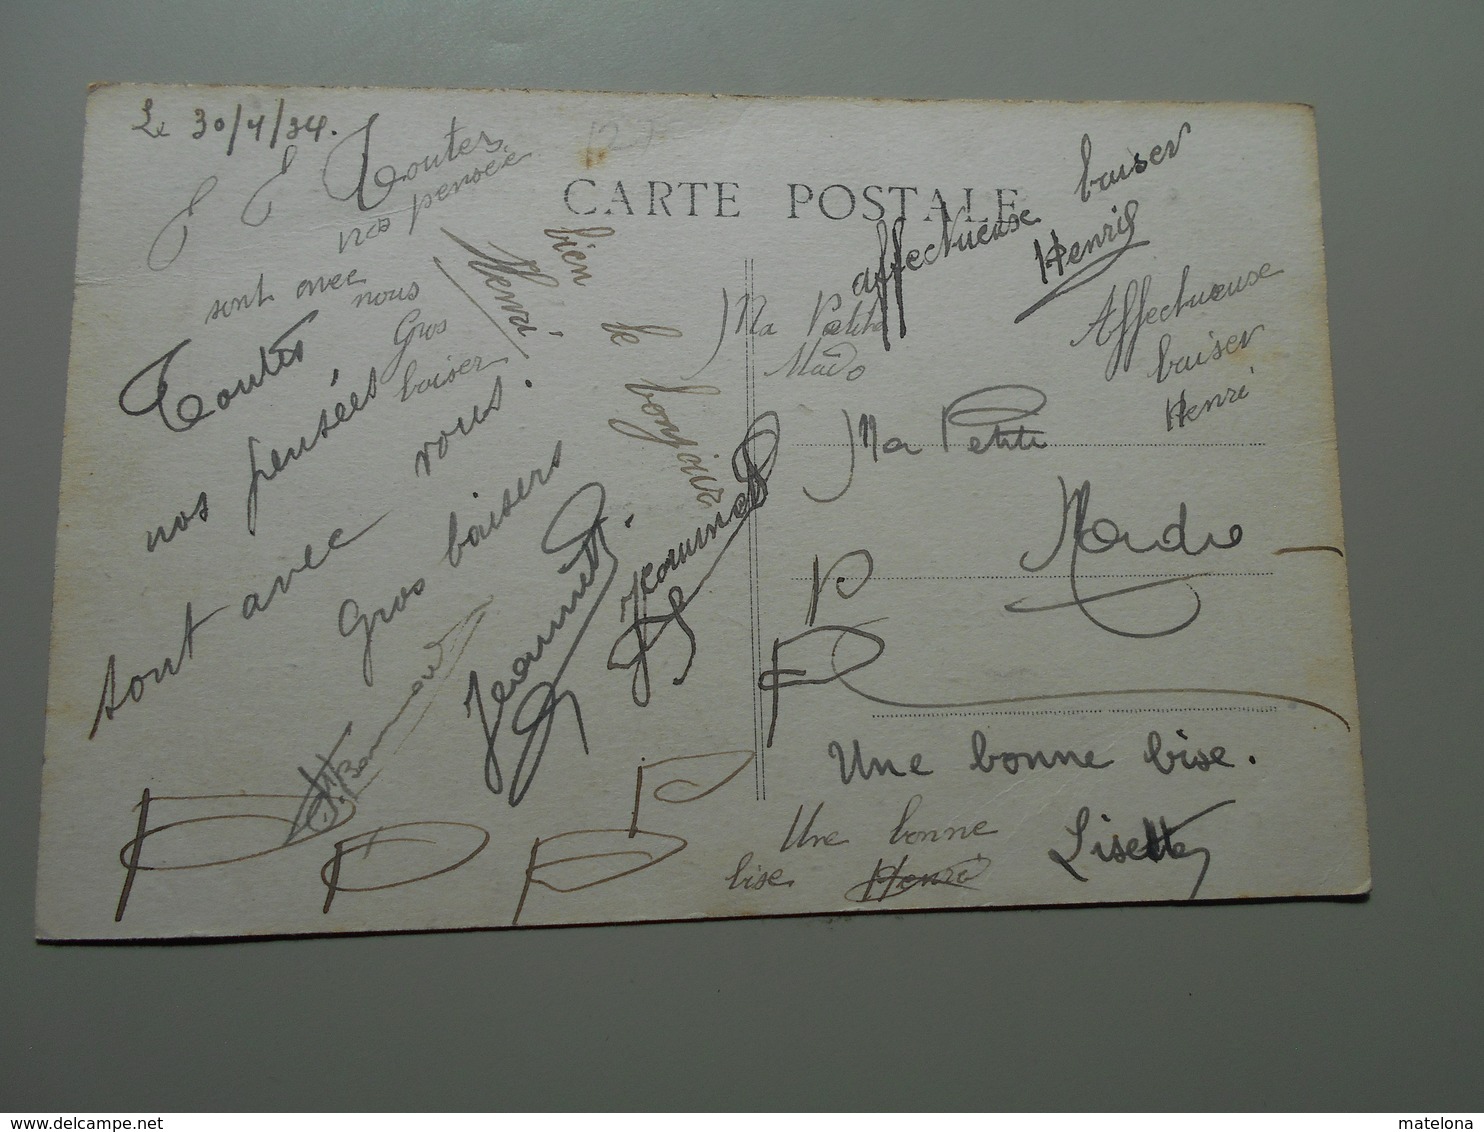 Le 30/4/34.
Toutes
nos pensée
sont avec
nous
Gros
baiser
Henri
Toutes
nos pensées
sont avec vous.
Gros baisers
Jeannette.
bien le bonjour
CARTE POSTALE
affectueuse baiser
Henri
Affectueuse
baiser
Henri
Ma Petite
Mado
Ma Petite
P
P
Une bonne bise.
Lisette
Une bonne
bise Henri
P P P P
www.delcampe.net
matelona